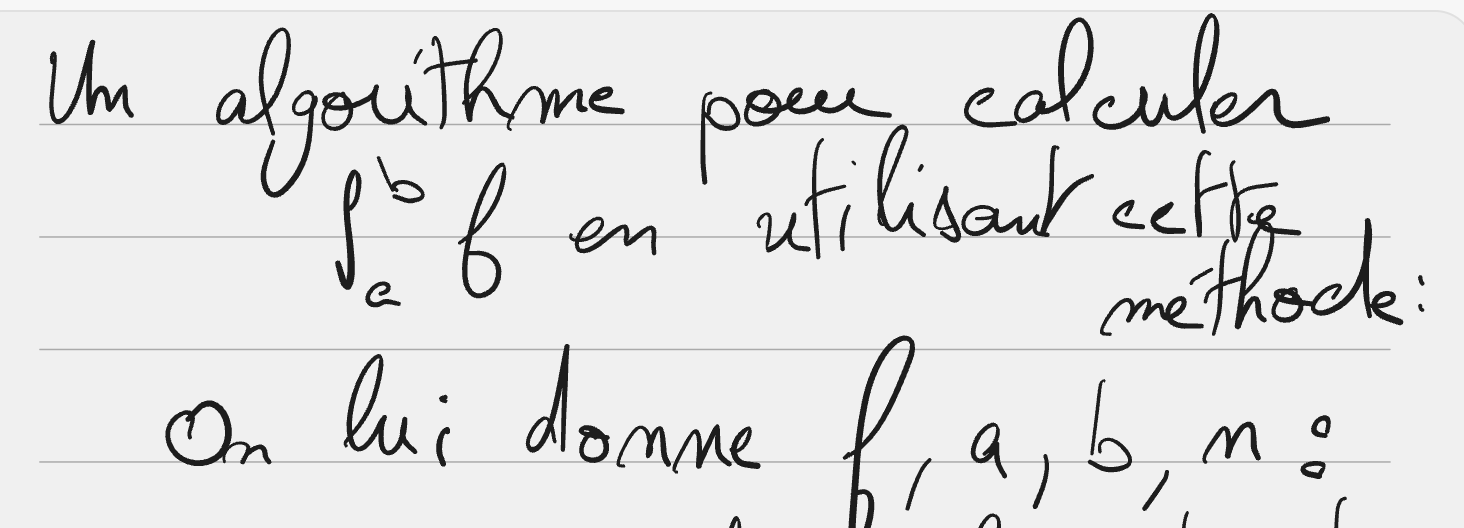 Un algorithme pour calculer
∫_a^b f en utilisant cette
méthode:
On lui donne f, a, b, n :